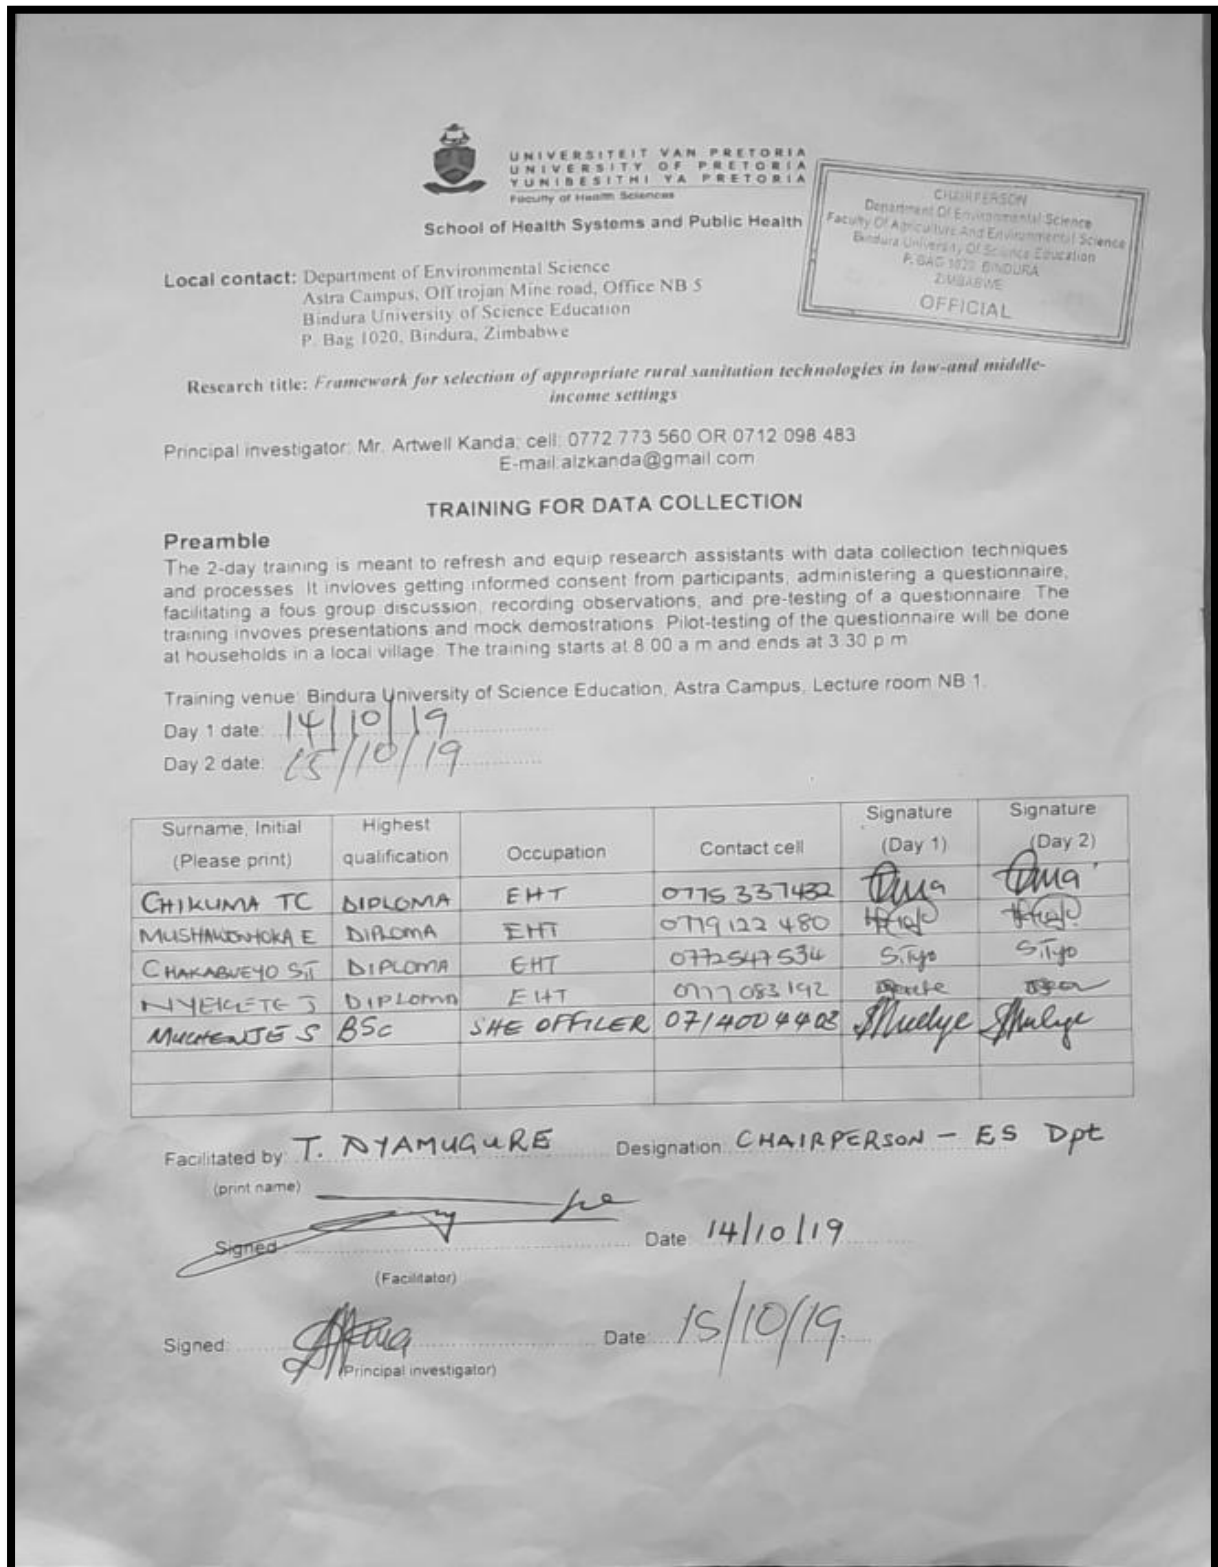 UNIVERSITEIT VAN PRETORIA
UNIVERSITY OF PRETORIA
YUNIBESITHI YA PRETORIA
Faculty of Health Sciences
School of Health Systems and Public Health
CHAIRPERSON
Department Of Environmental Science
Faculty Of Agriculture And Environmental Science
Bindura University Of Science Education
P. BAG 1020 BINDURA
ZIMBABWE
OFFICIAL
Local contact: Department of Environmental Science
Astra Campus, Off trojan Mine road, Office NB 5
Bindura University of Science Education
P. Bag 1020, Bindura, Zimbabwe
Research title: Framework for selection of appropriate rural sanitation technologies in low-and middle-
income settings
Principal investigator: Mr. Artwell Kanda; cell: 0772 773 560 OR 0712 098 483
E-mail:alzkanda@gmail.com
TRAINING FOR DATA COLLECTION
Preamble
The 2-day training is meant to refresh and equip research assistants with data collection techniques
and processes. It invloves getting informed consent from participants, administering a questionnaire,
facilitating a fous group discussion, recording observations, and pre-testing of a questionnaire. The
training invoves presentations and mock demostrations. Pilot-testing of the questionnaire will be done
at households in a local village. The training starts at 8.00 a m and ends at 3.30 p m
Training venue: Bindura University of Science Education, Astra Campus, Lecture room NB 1.
Day 1 date: 14/10/19
Day 2 date: 15/10/19
Surname, Initial (Please print) Highest qualification Occupation Contact cell Signature (Day 1) Signature (Day 2)
CHIKUMA TC DIPLOMA EHT 0775 337432
E DIPLOMA EHT 0779 122 480
S.T DIPLOMA EHT 0772547534 S.Tiyo S.Tiyo
J DIPLOMA EHT 0777 083 192
MUCHENJE S BSc SHE OFFICER 0714004403
Facilitated by: T. NYAMUGURE Designation: CHAIRPERSON - ES Dpt
(print name)
Signed Date 14/10/19
(Facilitator)
Signed: Date: 15/10/19
(Principal investigator)